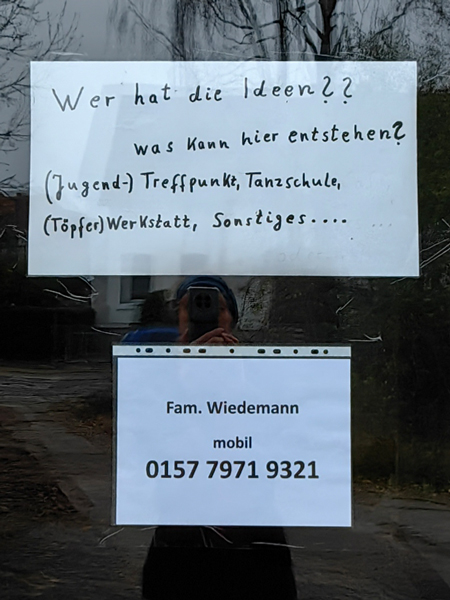 Wer hat die Ideen??
was kann hier entstehen?
(Jugend-) Treffpunkt, Tanzschule,
(Töpfer) Werkstatt, Sonstiges....
Fam. Wiedemann
mobil
0157 7971 9321